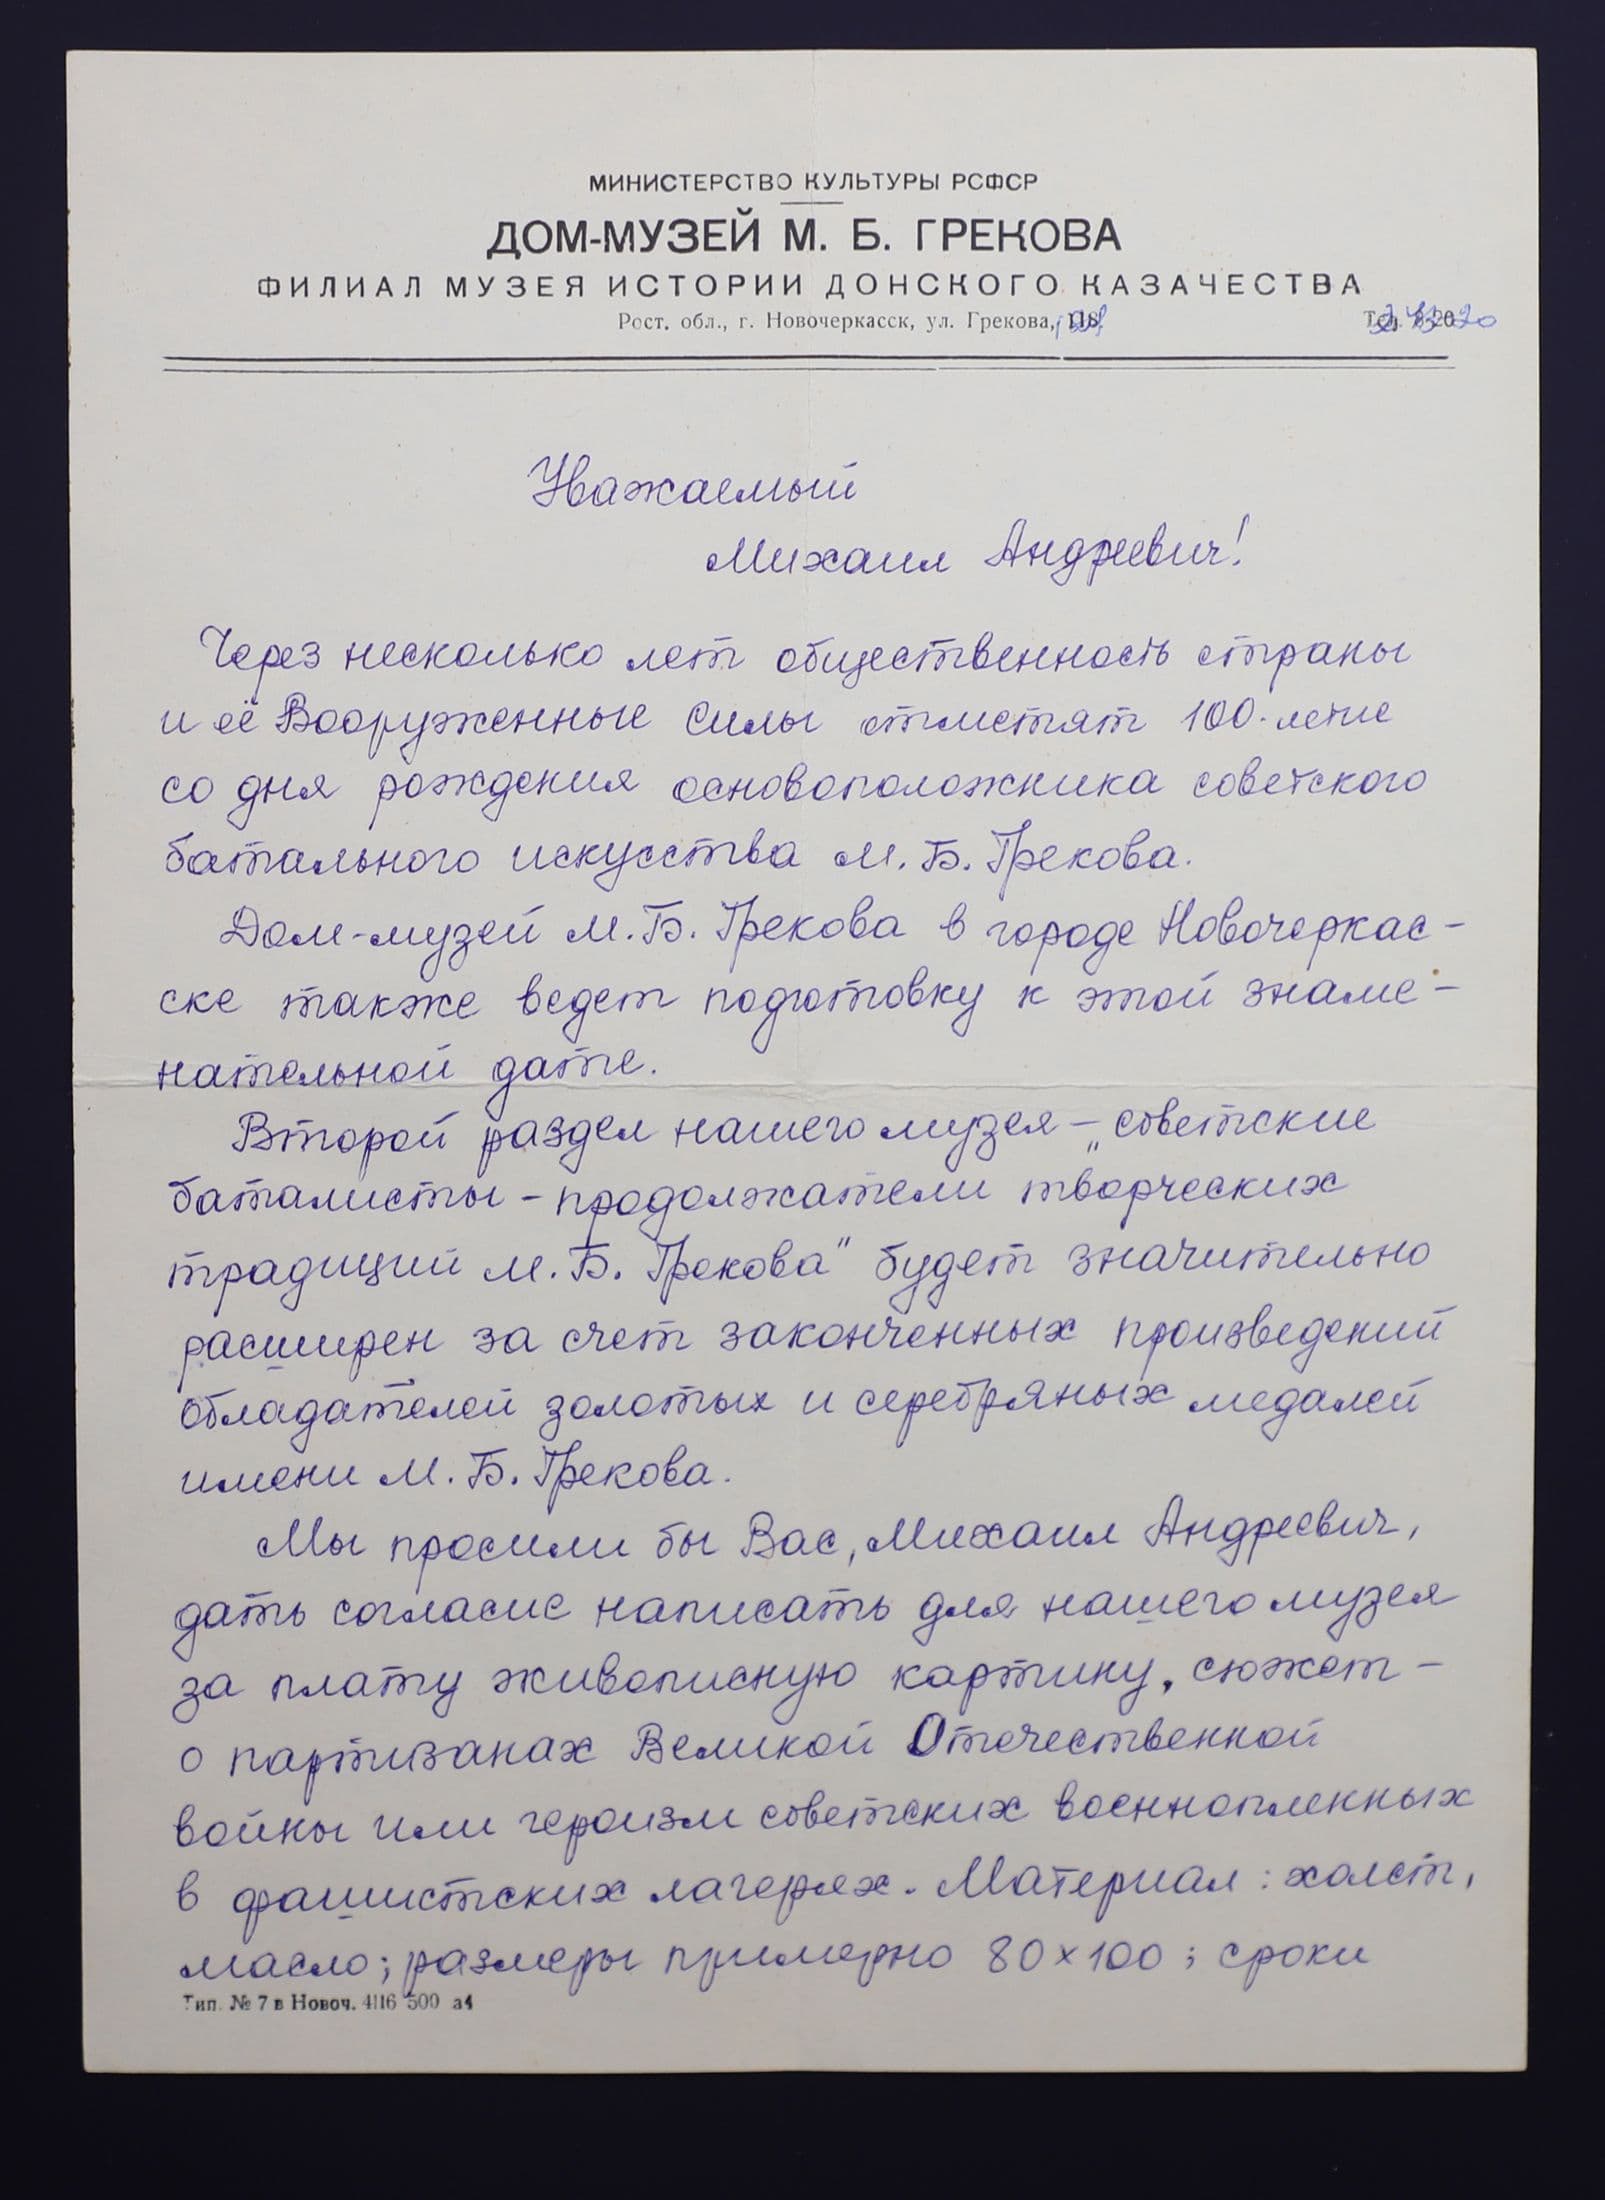 МИНИСТЕРСТВО КУЛЬТУРЫ РСФСР
ДОМ-МУЗЕЙ М. Б. ГРЕКОВА
ФИЛИАЛ МУЗЕЯ ИСТОРИИ ДОНСКОГО КАЗАЧЕСТВА
Рост. обл., г. Новочеркасск, ул. Грекова,
Уважаемый
Михаил Андреевич!
Через несколько лет общественность страны
и её Вооруженные Силы отметят 100-летие
со дня рождения основоположника советского
батального искусства М. Б. Грекова.
Дом-музей М. Б. Грекова в городе Новочеркас-
ске также ведет подготовку к этой знаме-
нательной дате.
Второй раздел нашего музея – „советские
баталисты – продолжатели творческих
традиций М. Б. Грекова" будет значительно
расширен за счет законченных произведений
обладателей золотых и серебряных медалей
имени М. Б. Грекова.
Мы просили бы Вас, Михаил Андреевич,
дать согласие написать для нашего музея
за плату живописную картину, сюжет –
о партизанах Великой Отечественной
войны или героизм советских военнопленных
в фашистских лагерях. Материал: холст,
масло; размеры примерно 80×100; сроки
Тип. № 7 в Новоч. 4116 500 а4